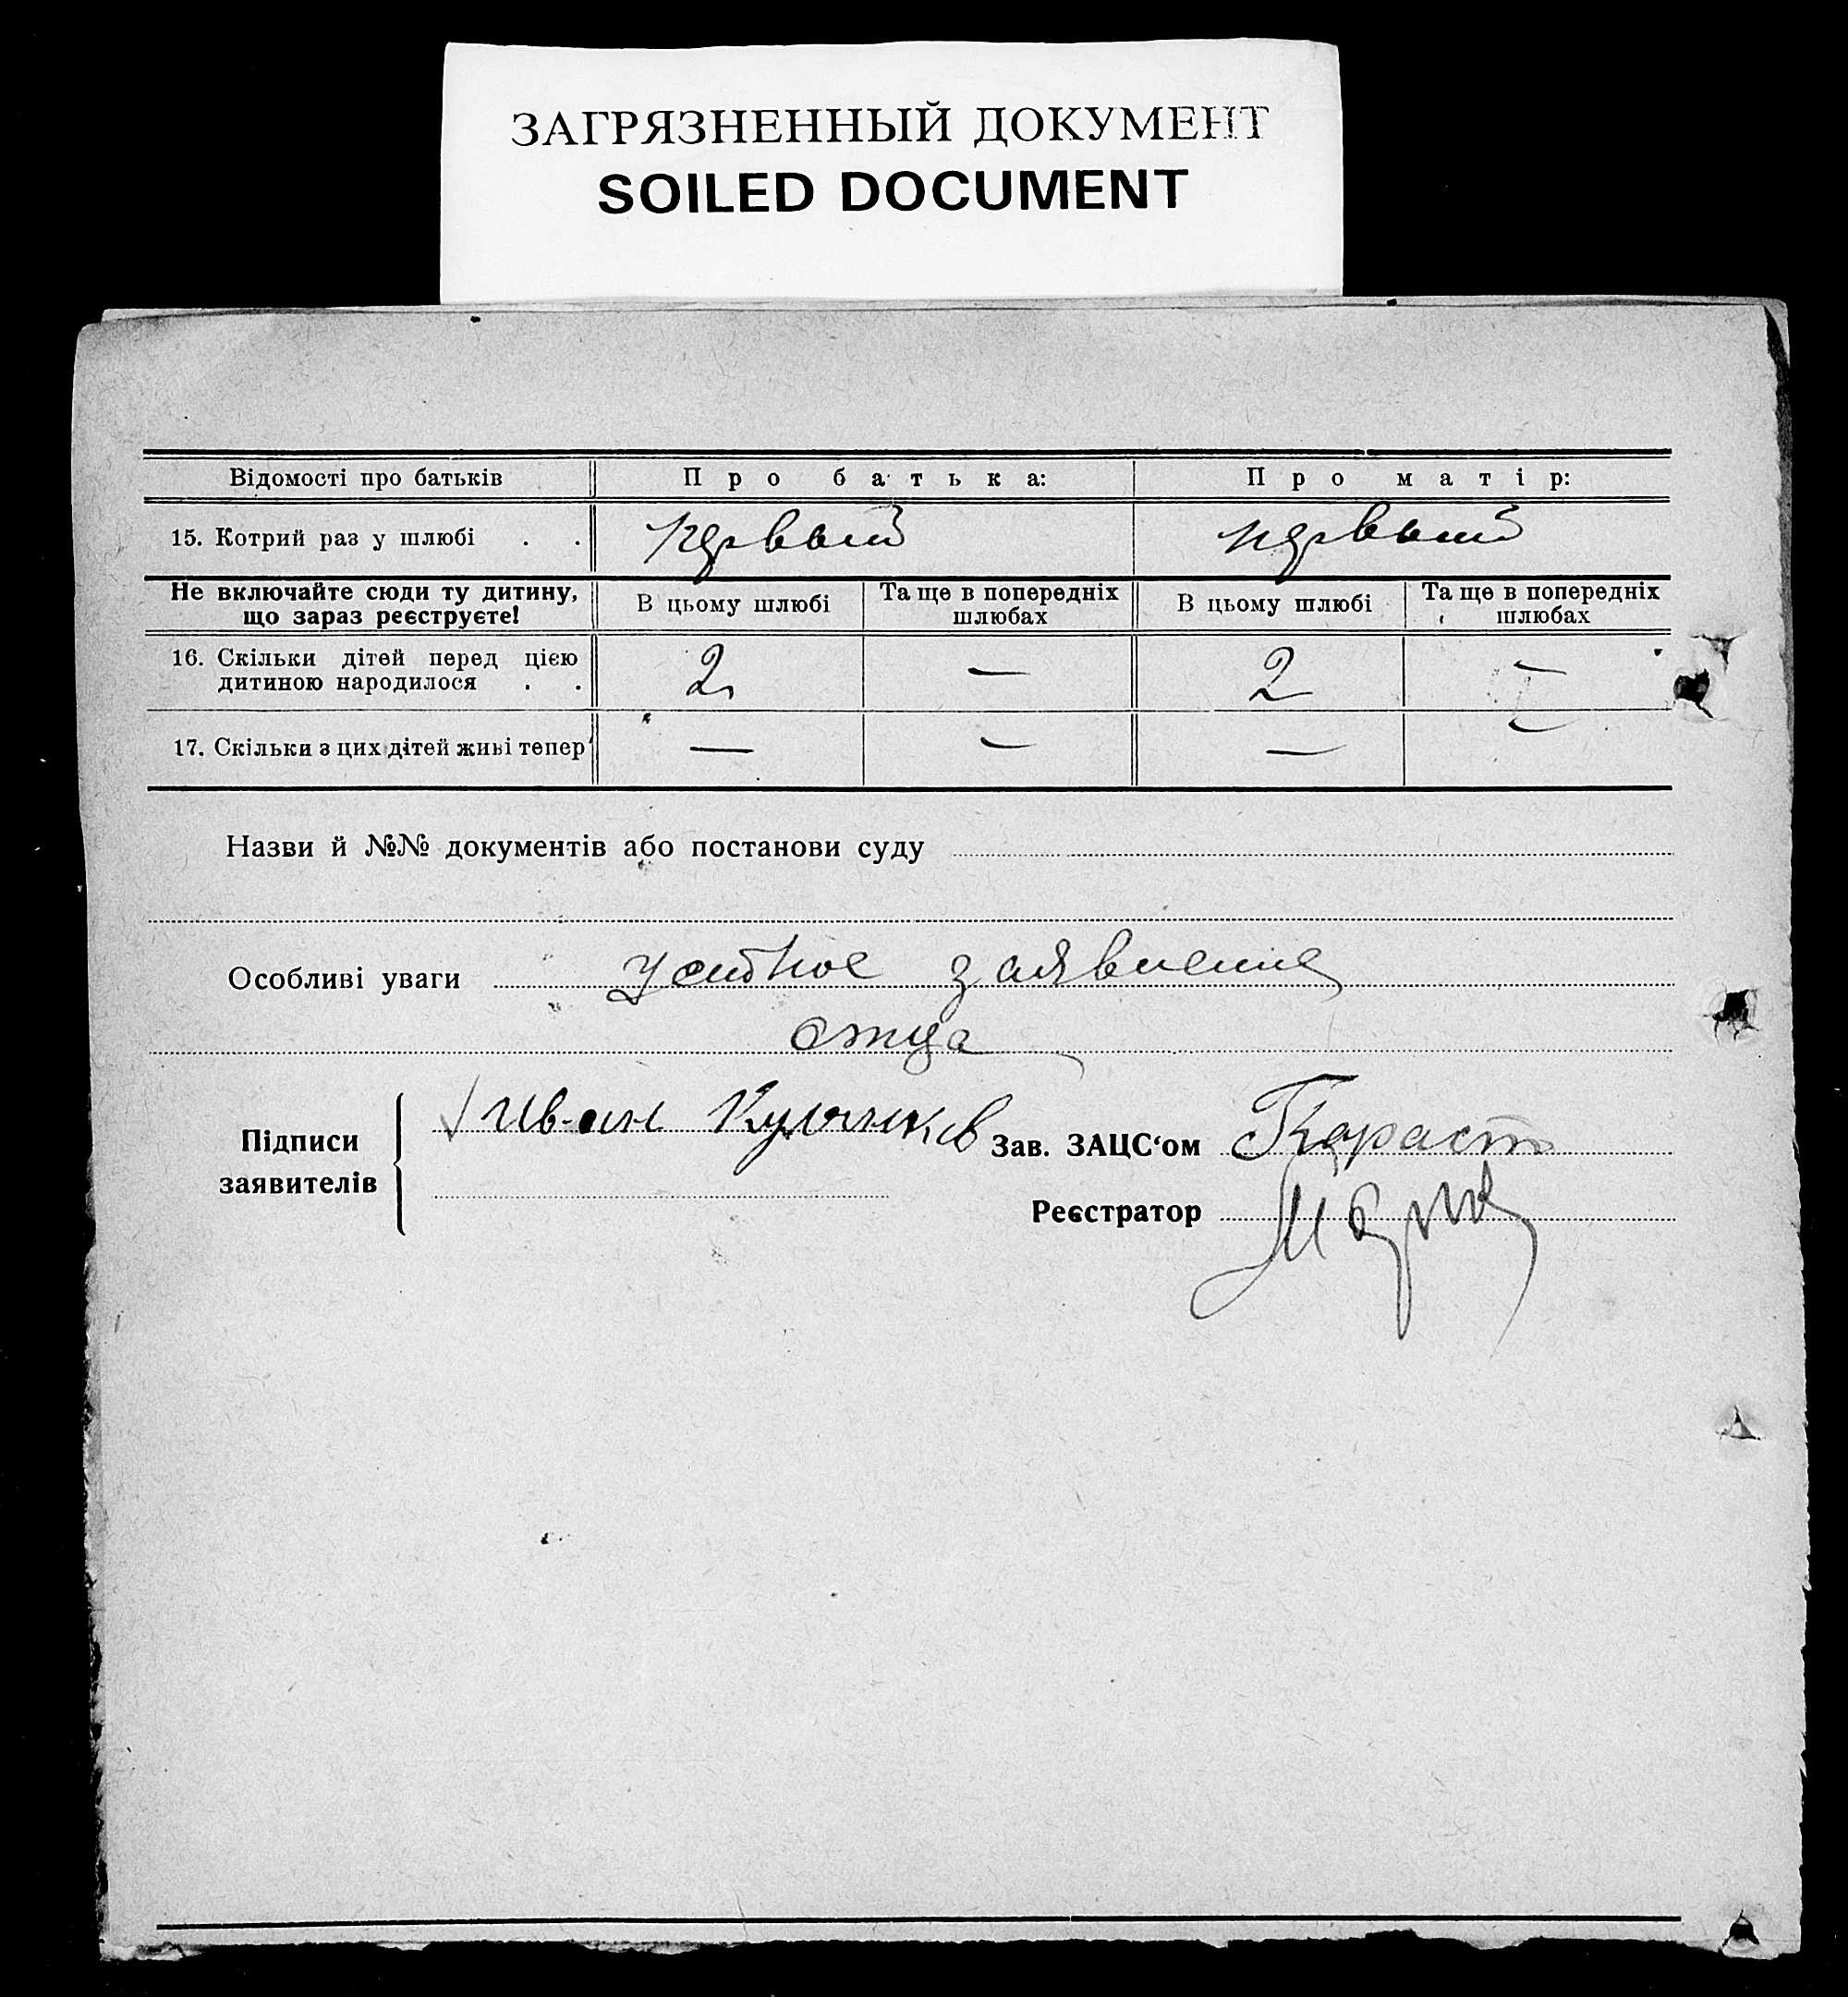 ЗАГРЯЗНЕННЫЙ ДОКУМЕНТ
SOILED DOCUMENT
Відомості про батьків Про батька: Про матір:
15. Котрий раз у шлюбі . . первый первый
Не включайте сюди ту дитину, що зараз реєструєте! В цьому шлюбі Та ще в попередніх шлюбах В цьому шлюбі Та ще в попередніх шлюбах
16. Скільки дітей перед цією дитиною народилося . . 2 — 2 —
17. Скільки з цих дітей живі тепер — — — —
Назви й №№ документів або постанови суду
Особливі уваги устное заявление
отца
Підписи заявителів Иван
Зав. ЗАЦС‘ом
Реєстратор